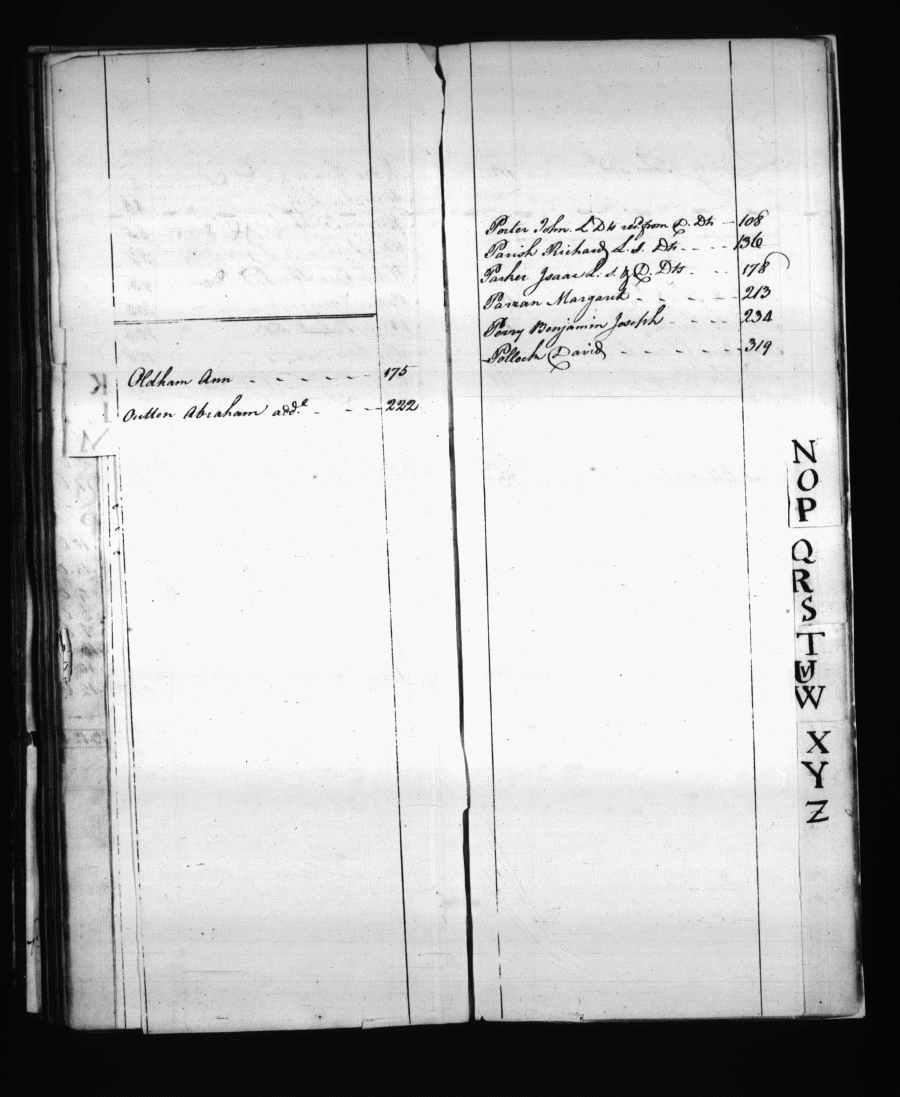 Oldham Ann - - - - - 175
Outten Abraham add.l - - - - 222
Porter John. L Dts recd. from D. Dts - 108
Parish Richard L. S. Dts - - - - 136
Parker Isaac L. S. & D. Dts - - 178
Parran Margaret - - - - - 213
Perry Benjamin Joseph - - - - 234
Pollock David - - - - - - 319
K
L
M
N
O
P
Q
R
S
T
U
V
W
X
Y
Z